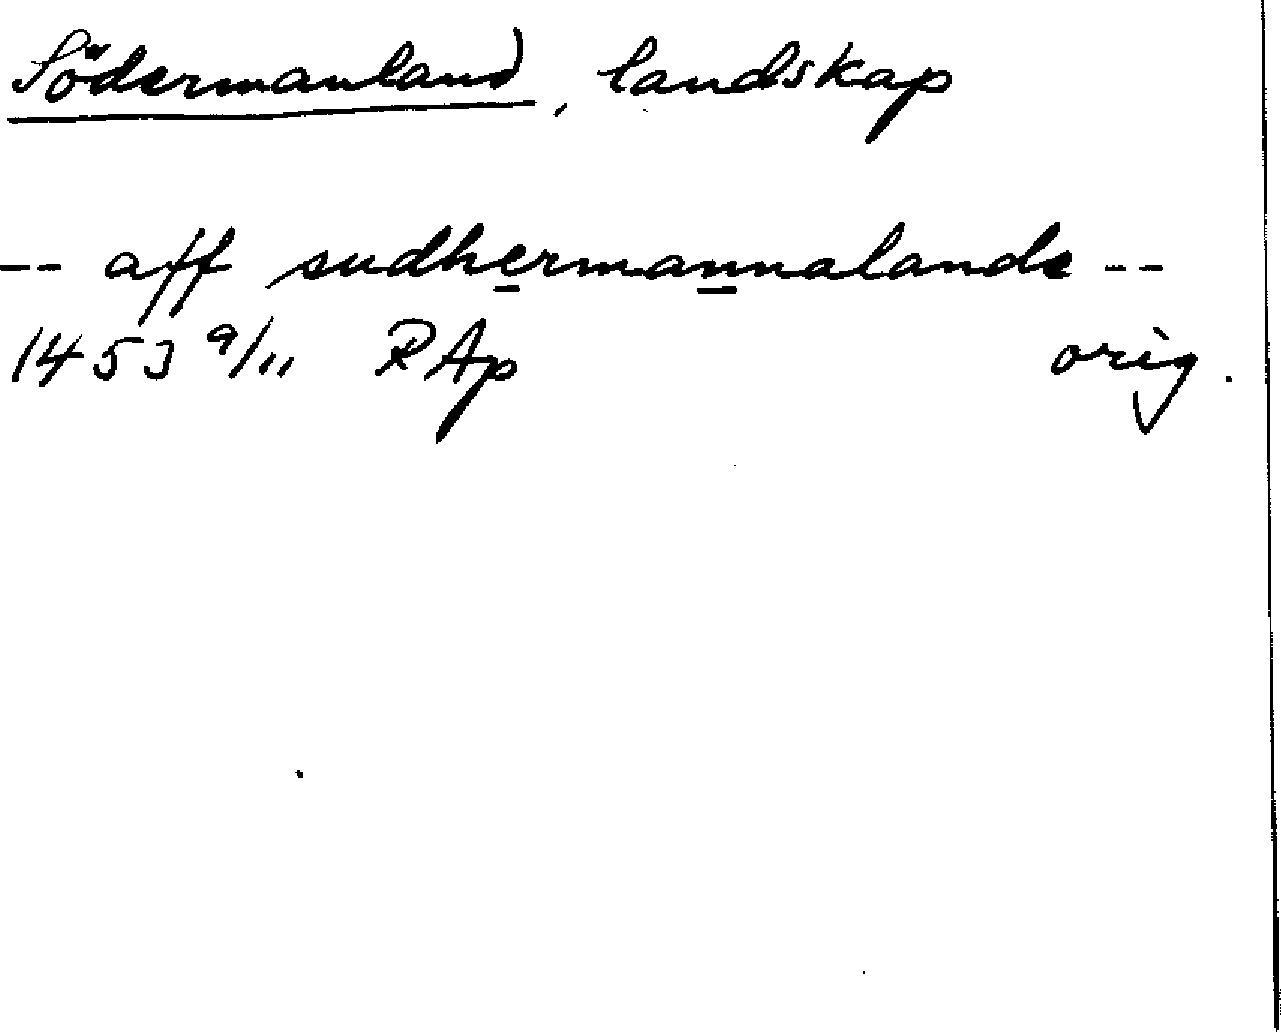 Södermanland, landskap
-- aff sudhermannalande --
1453 9/11 RAp orig.